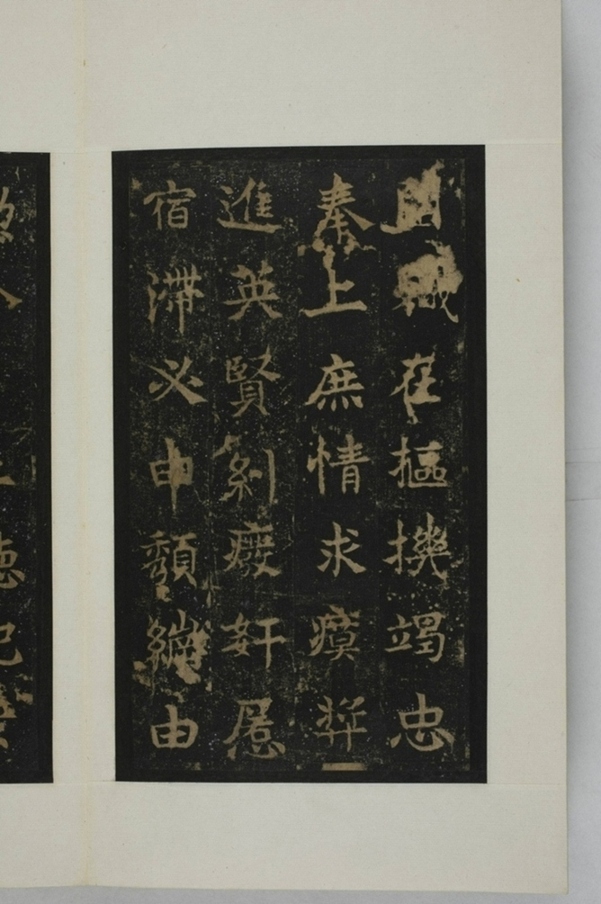 職在樞機竭忠
奉上庶情求瘼弉
進英賢糾癈奸慝
宿滯必申頽綱由